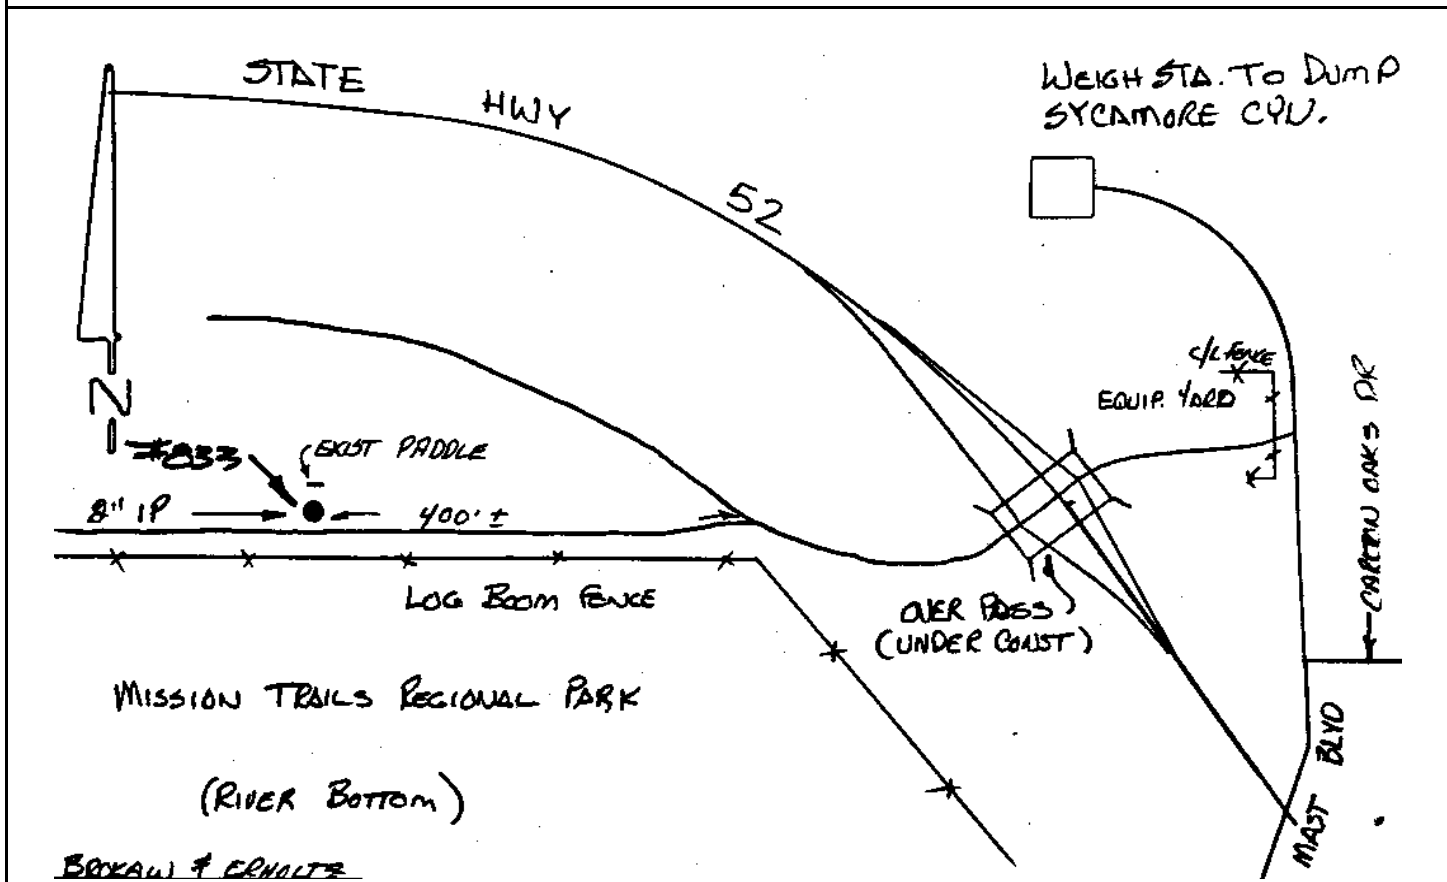 STATE HWY 52
WEIGH STA. TO DUMP
SYCAMORE CYN.
C/L FENCE
EQUIP. YARD
CARLTON OAKS DR
N
#833
EXIST PADDLE
2" IP
400' ±
LOG BOOM FENCE
OVER PASS
(UNDER CONST)
MISSION TRAILS REGIONAL PARK
(RIVER BOTTOM)
MAST BLVD
BROKAW & ERHOLTZ